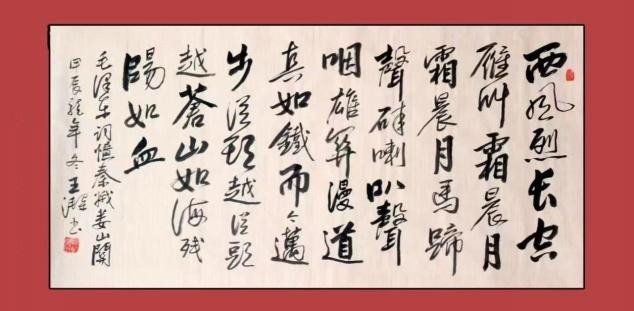 西风烈长空
雁叫霜晨月
霜晨月馬蹄
聲碎喇叭聲
咽雄关漫道
真如鐵而今邁
步从头越从頭
越蒼山如海残
陽如血
毛泽东词憶秦娥娄山關
甲辰龙年冬王书